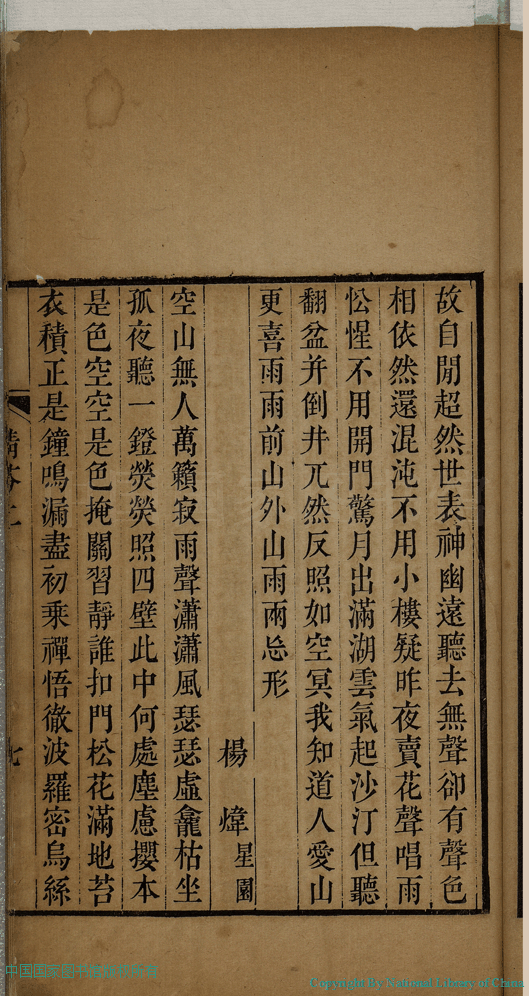 故自閒超然世表神幽遠聽去無聲卻有聲色
相依然還混沌不用小樓疑昨夜賣花聲唱雨
忪惺不用開門驚月出滿湖雲氣起沙汀但聽
翻盆并倒井兀然反照如空冥我知道人愛山
更喜雨雨前山外山雨兩忘形
楊煒星園
空山無人萬籟寂雨聲瀟瀟風瑟瑟虛龕枯坐
孤夜聽一鐙熒熒照四壁此中何處塵慮攖本
是色空空是色掩關習靜誰扣門松花滿地苔
衣積正是鐘鳴漏盡初乘禪悟徹波羅密烏絲
七
Copyright By National Library of China